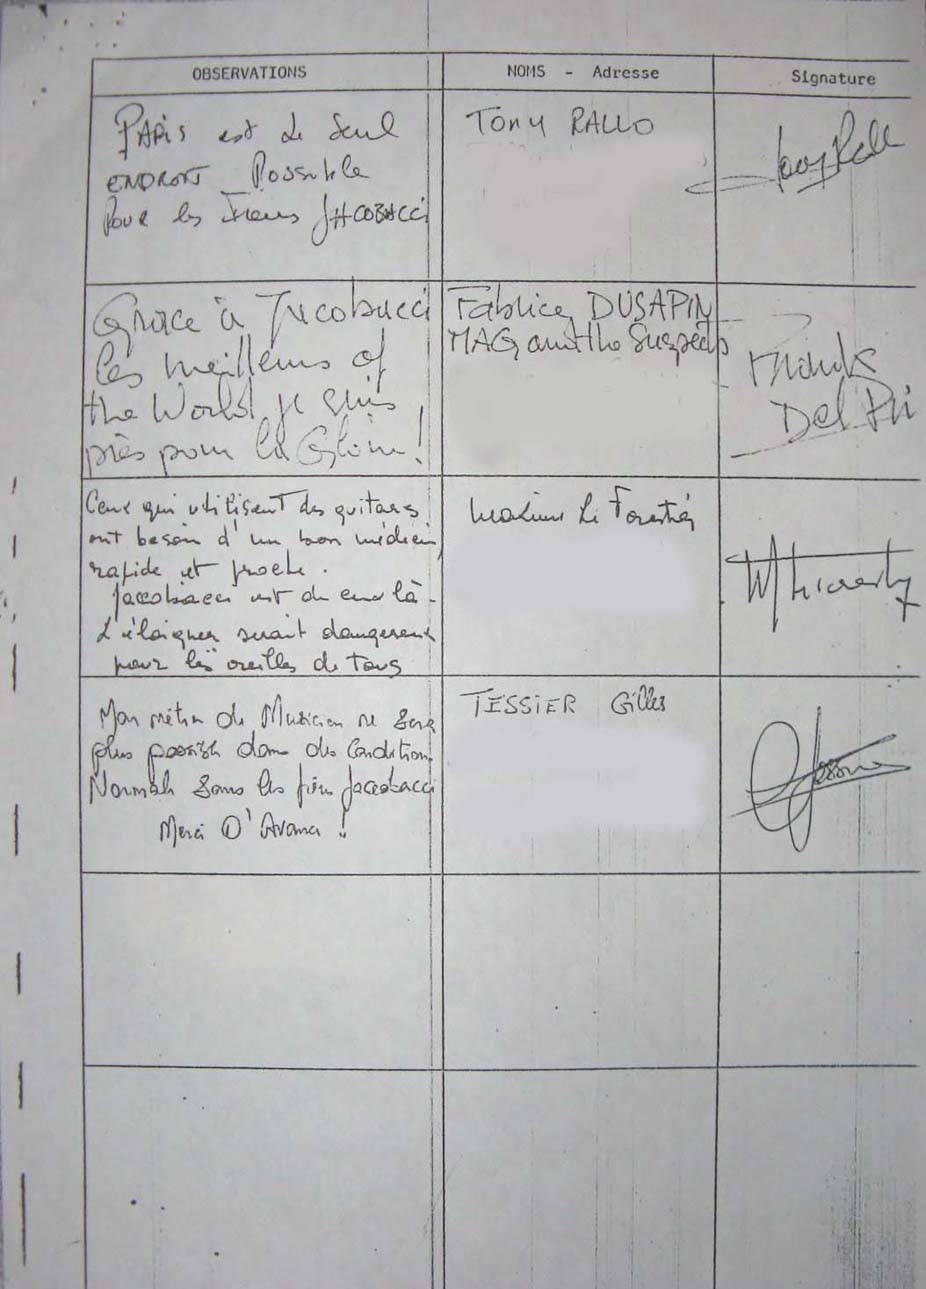 OBSERVATIONS
NOMS - Adresse
Signature
PARIS est Le Seul
ENDROIT Possible
Pour les Frères JACOBACCI
Tony RALLO
Grâce à Jacobacci
les meilleurs of
the World, je suis
près pour la Gloire!
Fabrice DUSAPIN
MAG and the Suspects
Thanks
Ceux qui utilisent des guitares
ont besoin d'un bon médecin,
rapide et proche.
Jaccobacci est de ceux là -
L'éloigner serait dangereux
pour les oreilles de tous
Maxime Le Forestier
Mon métier de Musicien ne sera
plus possible dans des Condition
Normale sans les frères Jaccobacci
Merci D'Avance !
TESSIER Gilles